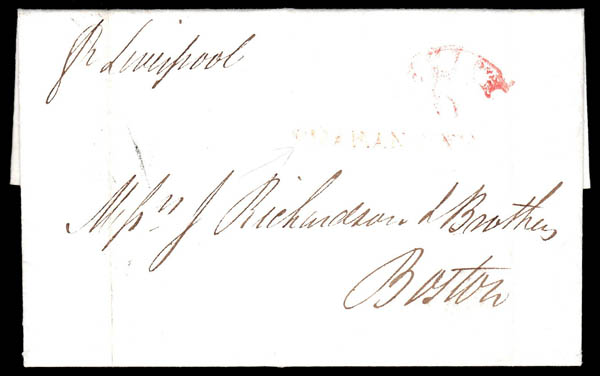 pr Liverpool
Messrs J Richardson & Brothers
Boston